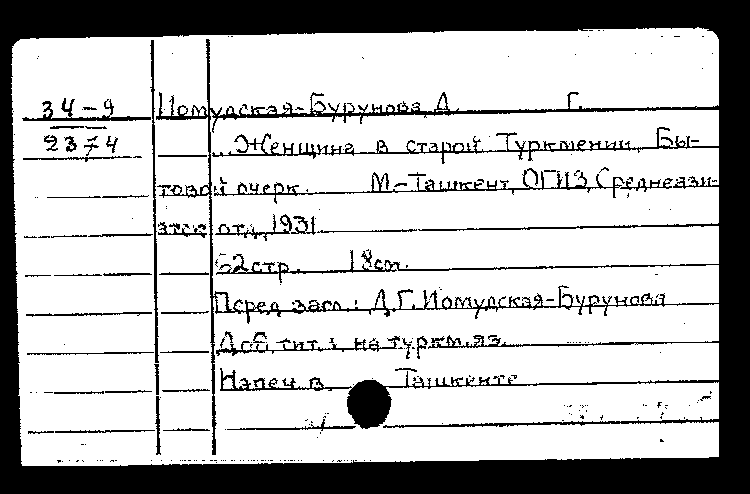 34-9 Иомудская-Бурунова, Д. Г.
2374 ...Женщина в старой Туркмении. Бы-
товой очерк. М.-Ташкент, ОГИЗ, Среднеази-
атск. отд., 1931.
62 стр. 18 см.
Перед загл.: Д.Г. Иомудская-Бурунова
Доб. тит. л. на туркм. яз.
Напеч. в Ташкенте